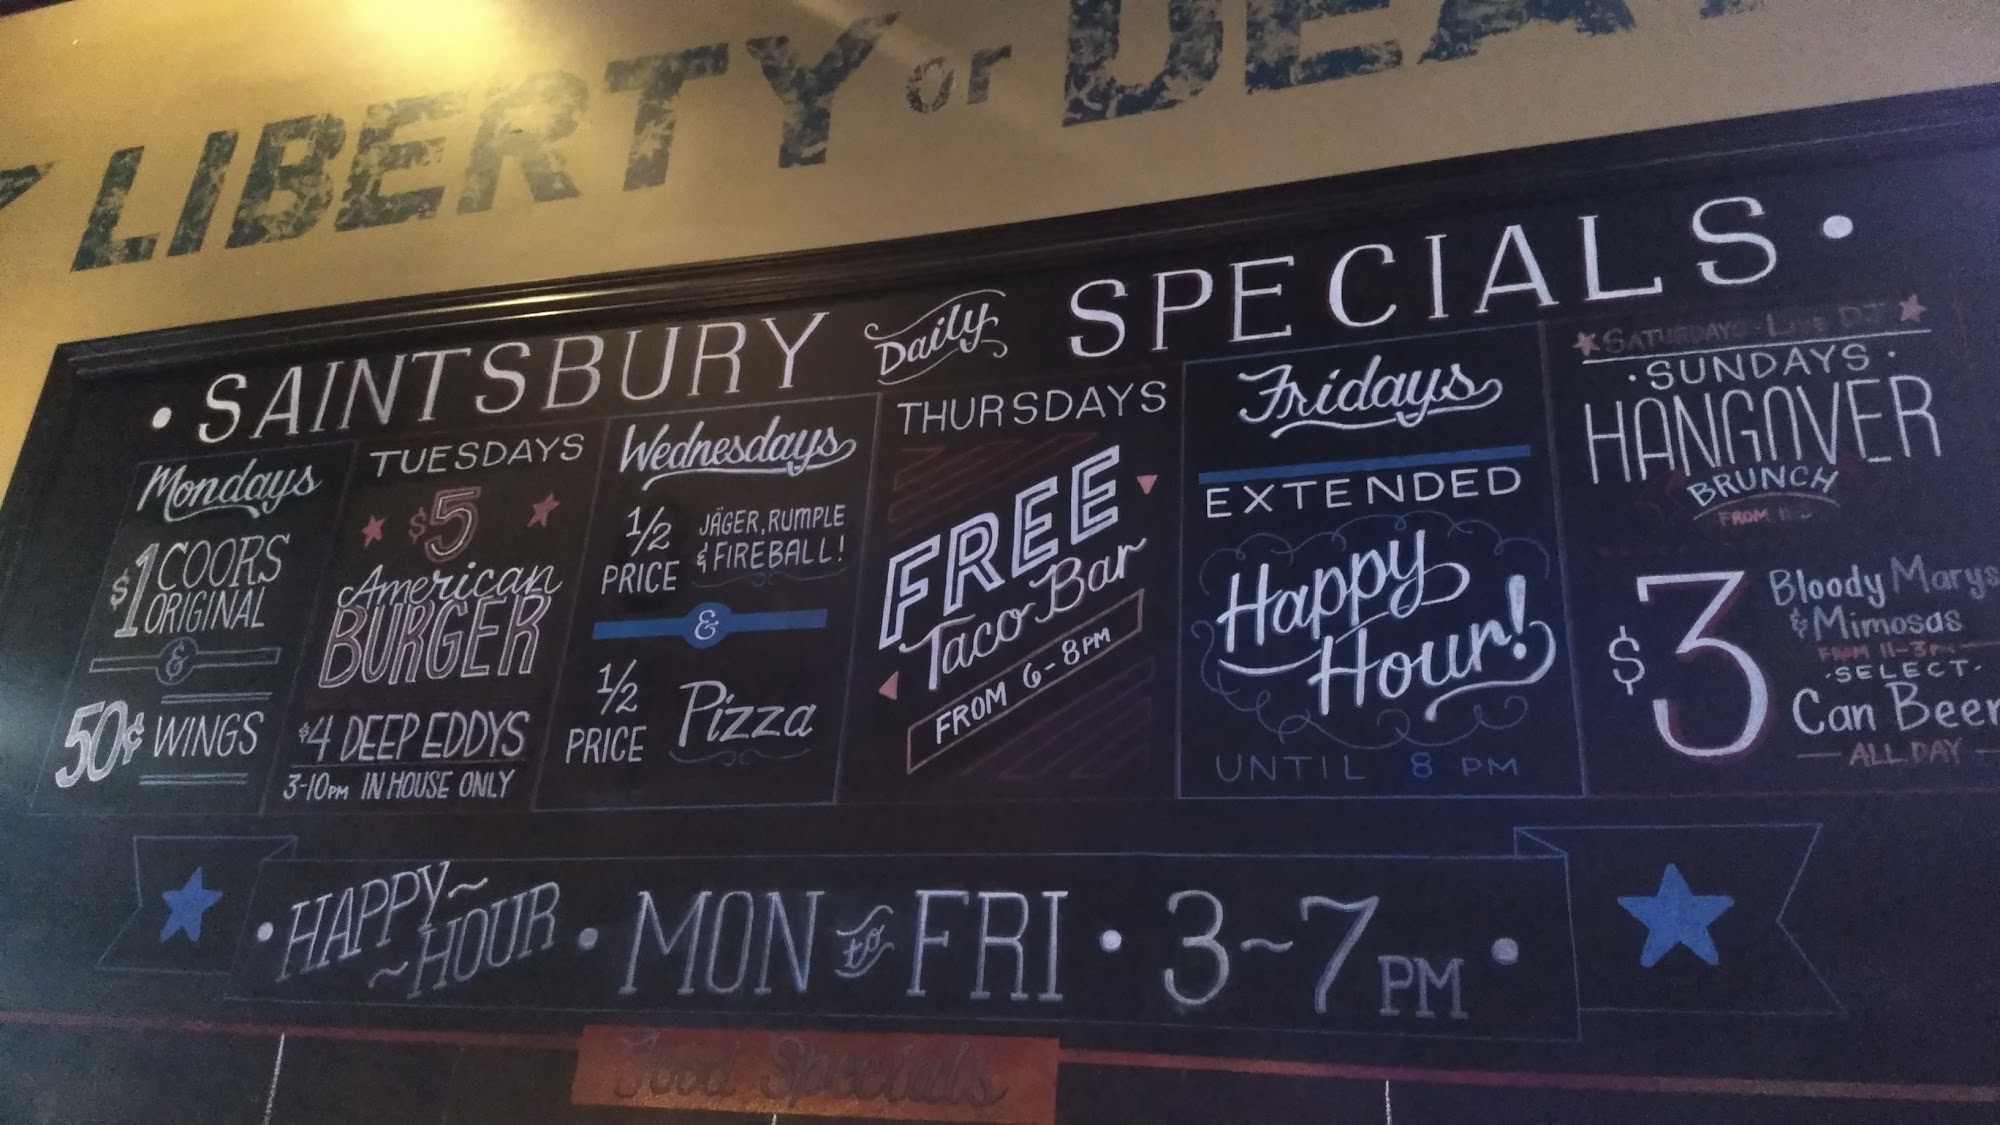 LIBERTY or
SAINTSBURY Daily SPECIALS
Mondays
$1 COORS
ORIGINAL
&
50¢ WINGS
TUESDAYS
$5
American
BURGER
$4 DEEP EDDYS
3-10PM IN HOUSE ONLY
Wednesdays
1/2
PRICE
JÄGER, RUMPLE
& FIREBALL!
&
1/2
PRICE
Pizza
THURSDAYS
FREE
Taco Bar
FROM 6-8PM
Fridays
EXTENDED
Happy
Hour!
UNTIL 8 PM
SATURDAYS - LIVE DJ
SUNDAYS
HANGOVER
BRUNCH
FROM
$3
Bloody Marys
& Mimosas
FROM 11-3PM
SELECT
Can Beer
ALL DAY
HAPPY~
~HOUR • MON to FRI • 3~7 PM
Food Specials